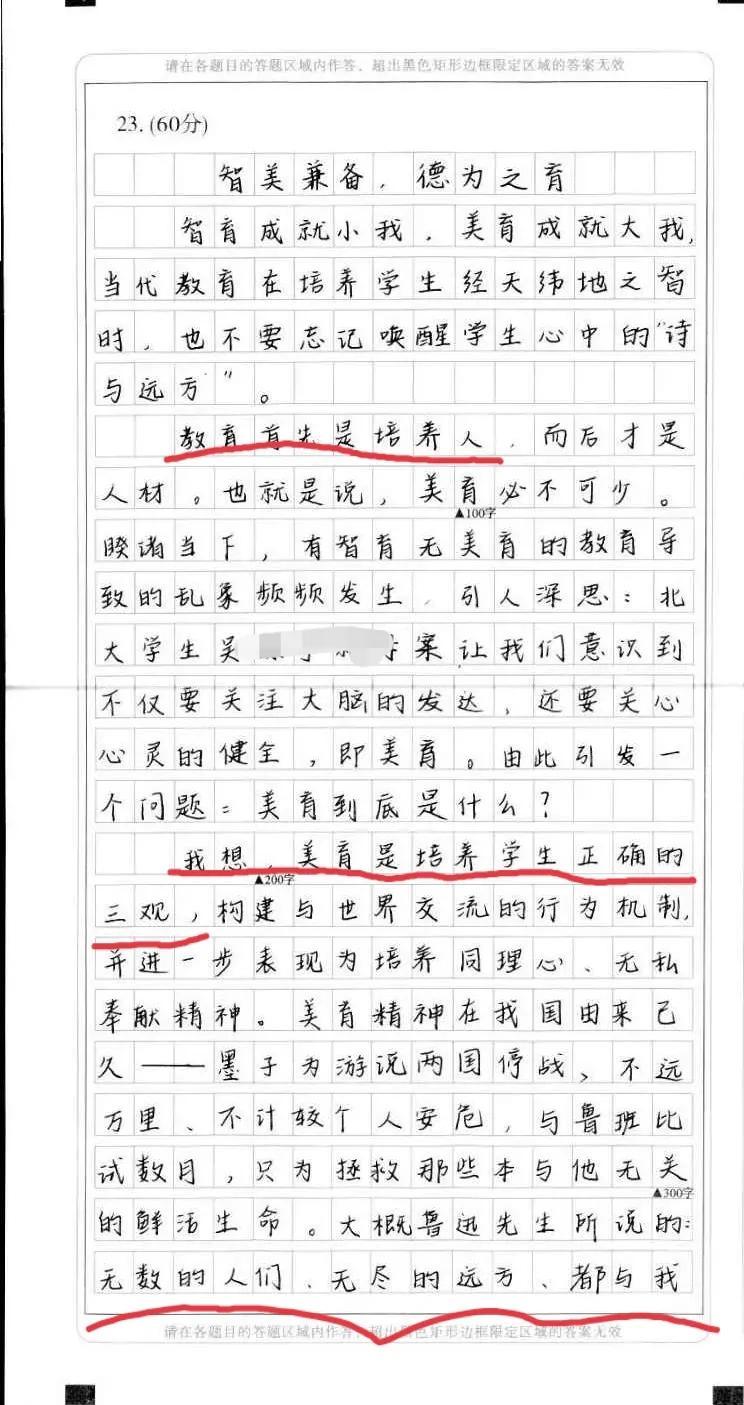 请在各题目的答题区域内作答、超出黑色矩形边框限定区域的答案无效
23. (60分)
智美兼备，德为之育
智育成就小我，美育成就大我，
当代教育在培养学生经天纬地之智
时，也不要忘记唤醒学生心中的“诗
与远方”。
教育首先是培养人，而后才是
人材。也就是说，美育必不可少。
▲100字
睽诸当下，有智育无美育的教育导
致的乱象频频发生，引人深思：北
大学生吴 案让我们意识到
不仅要关注大脑的发达，还要关心
心灵的健全，即美育。由此引发一
个问题：美育到底是什么？
我想，美育是培养学生正确的
▲200字
三观，构建与世界交流的行为机制，
并进一步表现为培养同理心、无私
奉献精神。美育精神在我国由来已
久——墨子为游说两国停战、不远
万里、不计较个人安危，与鲁班比
试数月，只为拯救那些本与他无关
▲300字
的鲜活生命。大概鲁迅先生所说的：
无数的人们、无尽的远方、都与我
请在各题目的答题区域内作答、超出黑色矩形边框限定区域的答案无效